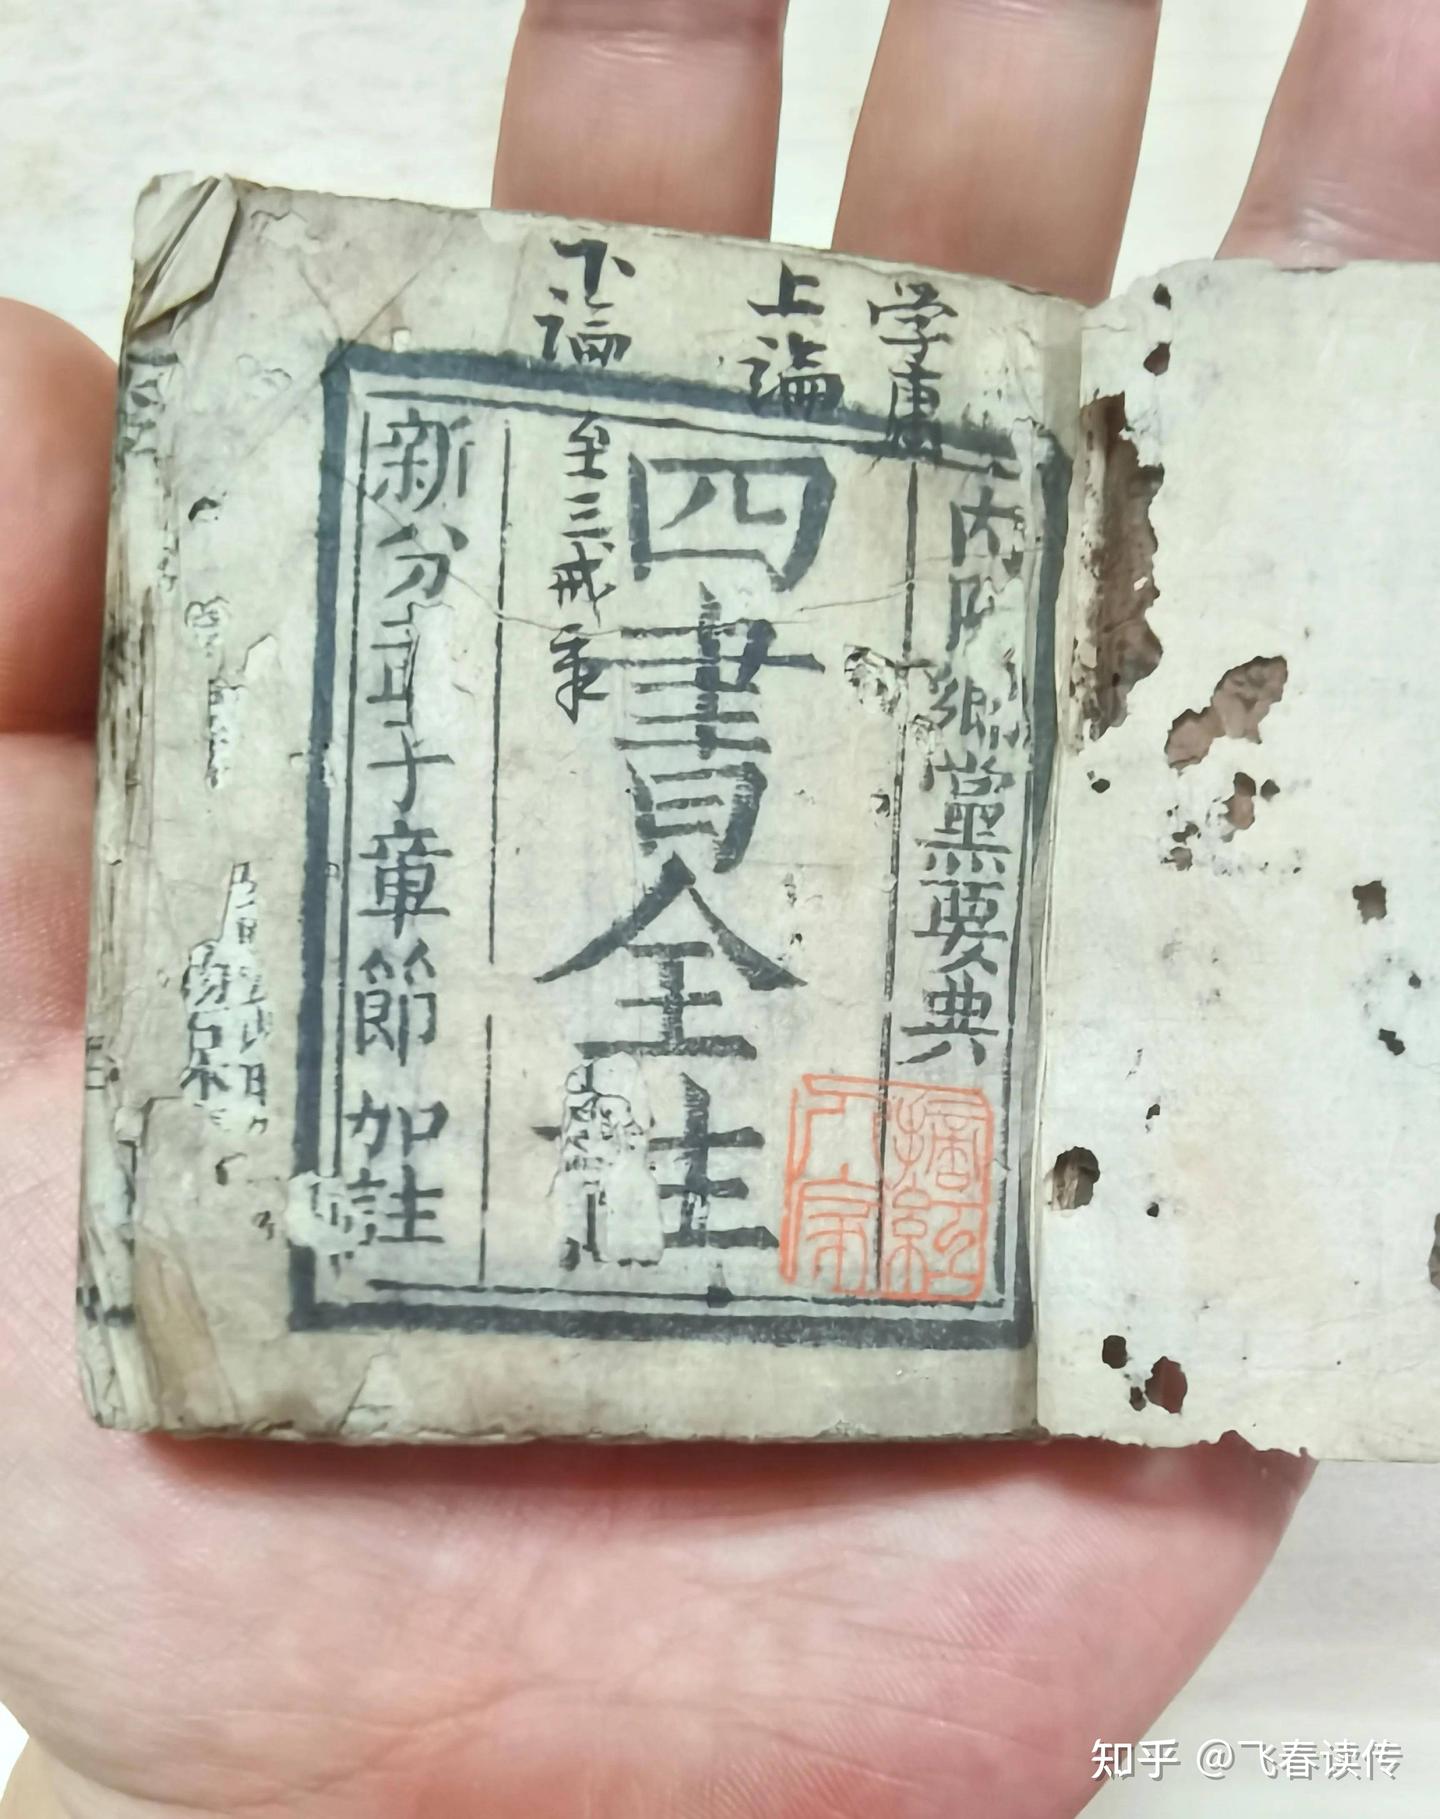 学庸
上論
下論
内附鄉黨要典
四書全註
至三戒章
新分孟子章節加註
知乎 @飞春读传